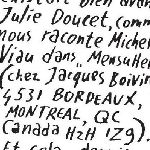 bien avant
Julie Doucet, comm
nous raconte Michel
Viau dans „Mensuhel
(chez Jacques Boivin
4531 BORDEAUX,
MONTREAL, QC
Canada H2H 1Z9).
Et cela